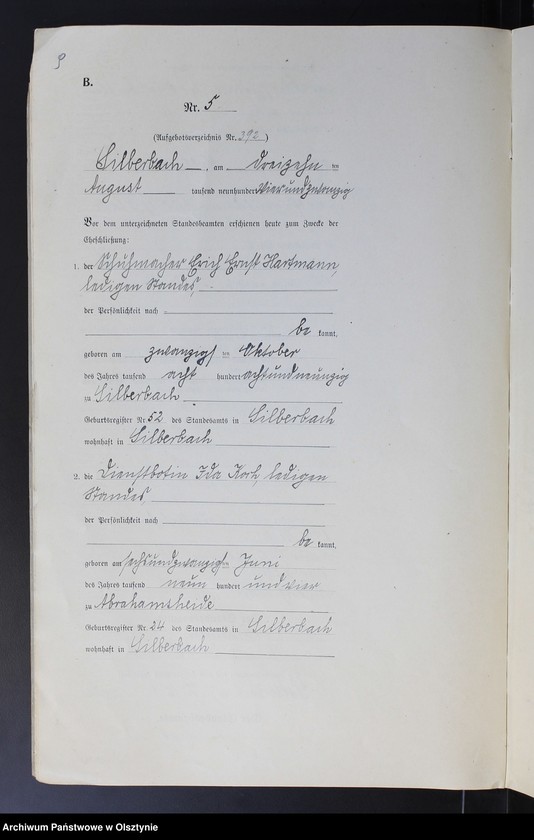 9
B.
Nr. 5
(Aufgebotsverzeichnis Nr. 392)
Silberbach, am dreizehn ten
August tausend neunhundert vierundzwanzig
Vor dem unterzeichneten Standesbeamten erschienen heute zum Zwecke der
Eheschließung:
1. der Schuhmacher Erich Ernst Hartmann,
ledigen Standes,
der Persönlichkeit nach
be kannt,
geboren am zwanzigsten Oktober
des Jahres tausend acht hundert achtundneunzig
zu Silberbach
Geburtsregister Nr. 52 des Standesamts in Silberbach
wohnhaft in Silberbach
2. die Dienstbotin Ida Korh, ledigen
Standes
der Persönlichkeit nach
be kannt,
geboren am sechsundzwanzigsten Juni
des Jahres tausend neun hundert und vier
zu Abrahamsheide
Geburtsregister Nr. 24 des Standesamts in Silberbach
wohnhaft in Silberbach
Archiwum Państwowe w Olsztynie